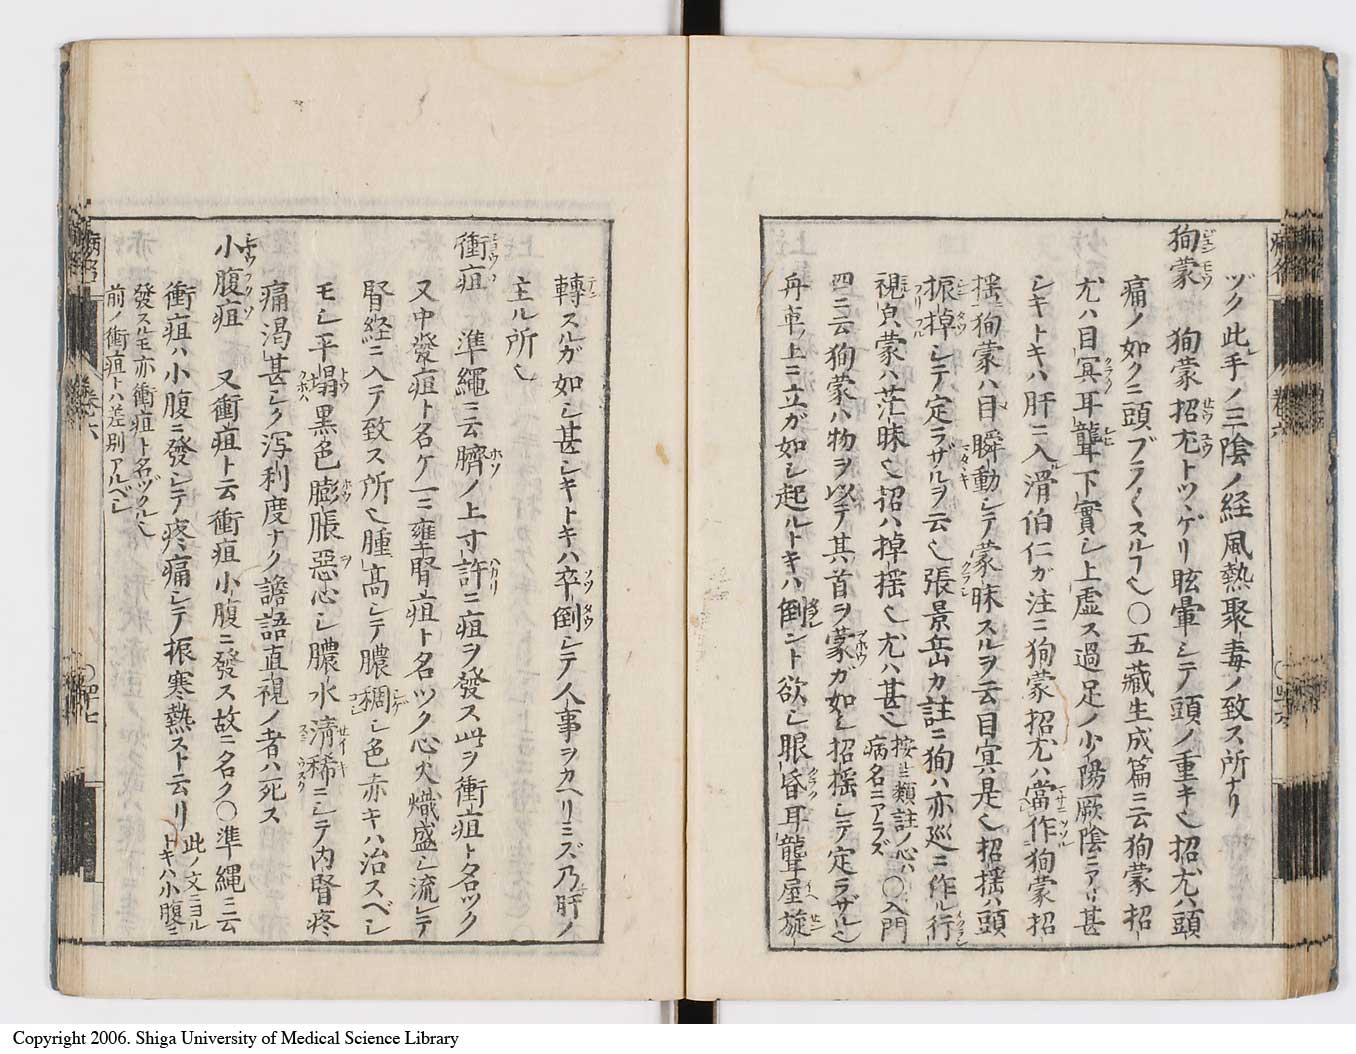 ヅク此手ノ三陰ノ経風熱聚毒ノ致ス所ナリ
狥蒙 狥蒙招尤トツヾゲリ眩暈シテ頭ノ重キ也招尤ハ頭
痛ノ如クニ頭ブラ〱スルヿ也〇五藏生成篇ニ云狥蒙招
尤ハ目冥耳聾下實シ上虚ス過足ノ少陽厥陰ニアリ甚
シキトキハ肝ニ入滑伯仁ガ注ニ狥蒙招尤ハ當作狥蒙招
揺狥蒙ハ目瞬動シテ蒙昧スルヲ云目冥是也招揺ハ頭
振掉シテ定ラザルヲ云也張景岳カ註ニ狥ハ亦巡ニ作ル行
視皃蒙ハ茫昧也招ハ掉揺也尤ハ甚也 按ニ類註ノ心ハ病名ニアラズ 〇入門
四ニ云狥蒙ハ物ヲ以テ其首ヲ蒙カ如シ招揺シテ定ラザル也
舟車ノ上ニ立ガ如シ起ルトキハ倒ント欲シ眼昏耳聾屋旋
轉スルガ如シ甚シキトキハ卒倒シテ人事ヲカヘリミズ乃肝ノ
主ル所也
衝疽 準繩ニ云臍ノ上寸許ニ疽ヲ發ス此ヲ衝疽ト名ツク
又中發疽ト名ケ一ニ壅腎疽ト名ツク心火熾盛シ流レテ
腎経ニ入テ致ス所也腫高シテ膿稠シ色赤キハ治スベシ
モシ平塌黒色膨脹惡心シ膿水清稀ニシテ内腎疼
痛渇甚シク泻利度ナク譫語直視ノ者ハ死ス
小腹疽 又衝疽ト云衝疽小腹ニ發ス故ニ名ク〇準縄ニ云
衝疽ハ小腹ニ發シテ疼痛シテ振寒熱スト云リ 此ノ文ニヨルトキハ小腹ニ
發スルモ亦衝疽ト名ヅクル也
前ノ衝疽トハ差別アルベシ
病名 巻六 〇四十七
Copyright 2006. Shiga University of Medical Science Library